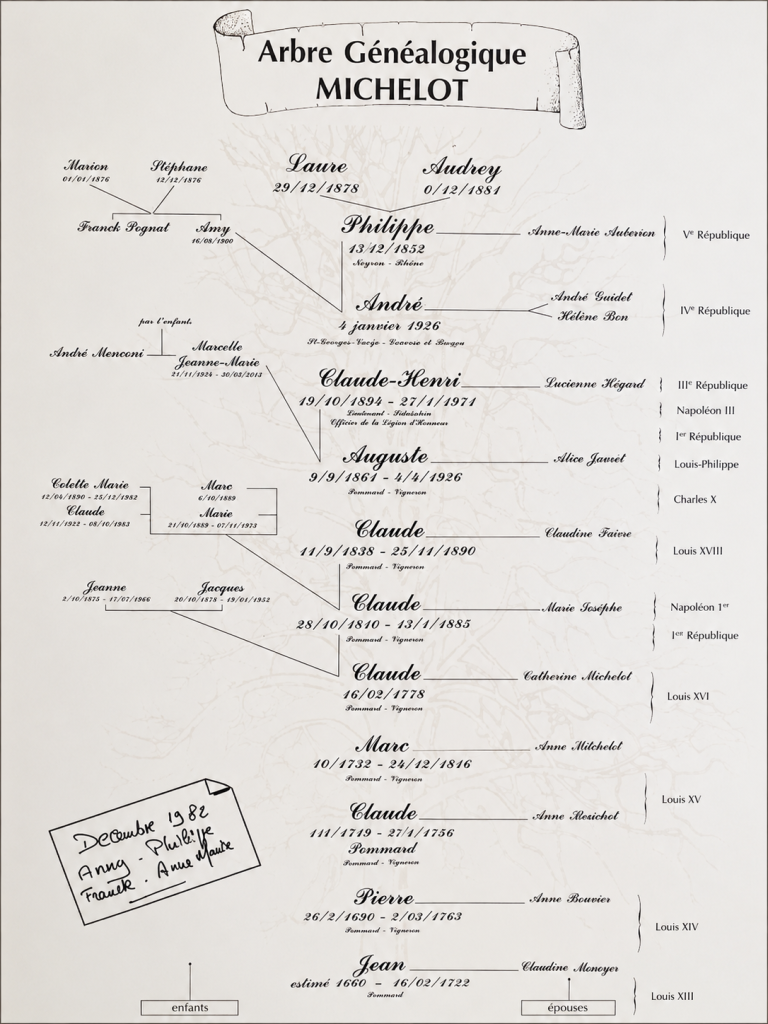 Arbre Généalogique
MICHELOT
Marion
01/01/1876
Stéphane
12/12/1876
Laure
29/12/1878
Audrey
0/12/1881
Franck Pognat
Amy
16/08/1900
Philippe
13/12/1852
Neyron - Rhône
Anne-Marie Auberion
Ve République
André
4 janvier 1926
André Guidet
Hélène Bon
IVe République
par l'enfant.
André Menconi
Marcelle
Jeanne-Marie
21/11/1924 - 30/03/2013
Claude-Henri
19/10/1894 - 27/1/1971
Officier de la Légion d'Honneur
Lucienne Hégard
IIIe République
Napoléon III
Ier République
Auguste
9/9/1861 - 4/4/1926
Pommard - Vigneron
Alice Javiet
Louis-Philippe
Charles X
Colette Marie
12/04/1890 - 25/12/1982
Claude
12/11/1922 - 08/10/1983
Marc
6/10/1889
Marie
21/10/1889 - 07/11/1973
Claude
11/9/1838 - 25/11/1890
Pommard - Vigneron
Claudine Faivre
Louis XVIII
Jeanne
2/10/1875 - 17/07/1966
Jacques
20/10/1878 - 19/01/1952
Claude
28/10/1810 - 13/1/1885
Pommard - Vigneron
Marie Josèphe
Napoléon 1er
Ier République
Claude
16/02/1778
Pommard - Vigneron
Catherine Michelot
Louis XVI
Marc
10/1732 - 24/12/1816
Pommard - Vigneron
Anne Mitchelot
Louis XV
Claude
111/1719 - 27/1/1756
Pommard
Pommard - Vigneron
Anne
Decembre 1982
Anny - Philippe
Franck . Anne Marie
Pierre
26/2/1690 - 2/03/1763
Pommard - Vigneron
Anne Bouvier
Louis XIV
Jean
estimé 1660 - 16/02/1722
Pommard
Claudine Monoyer
Louis XIII
enfants
épouses